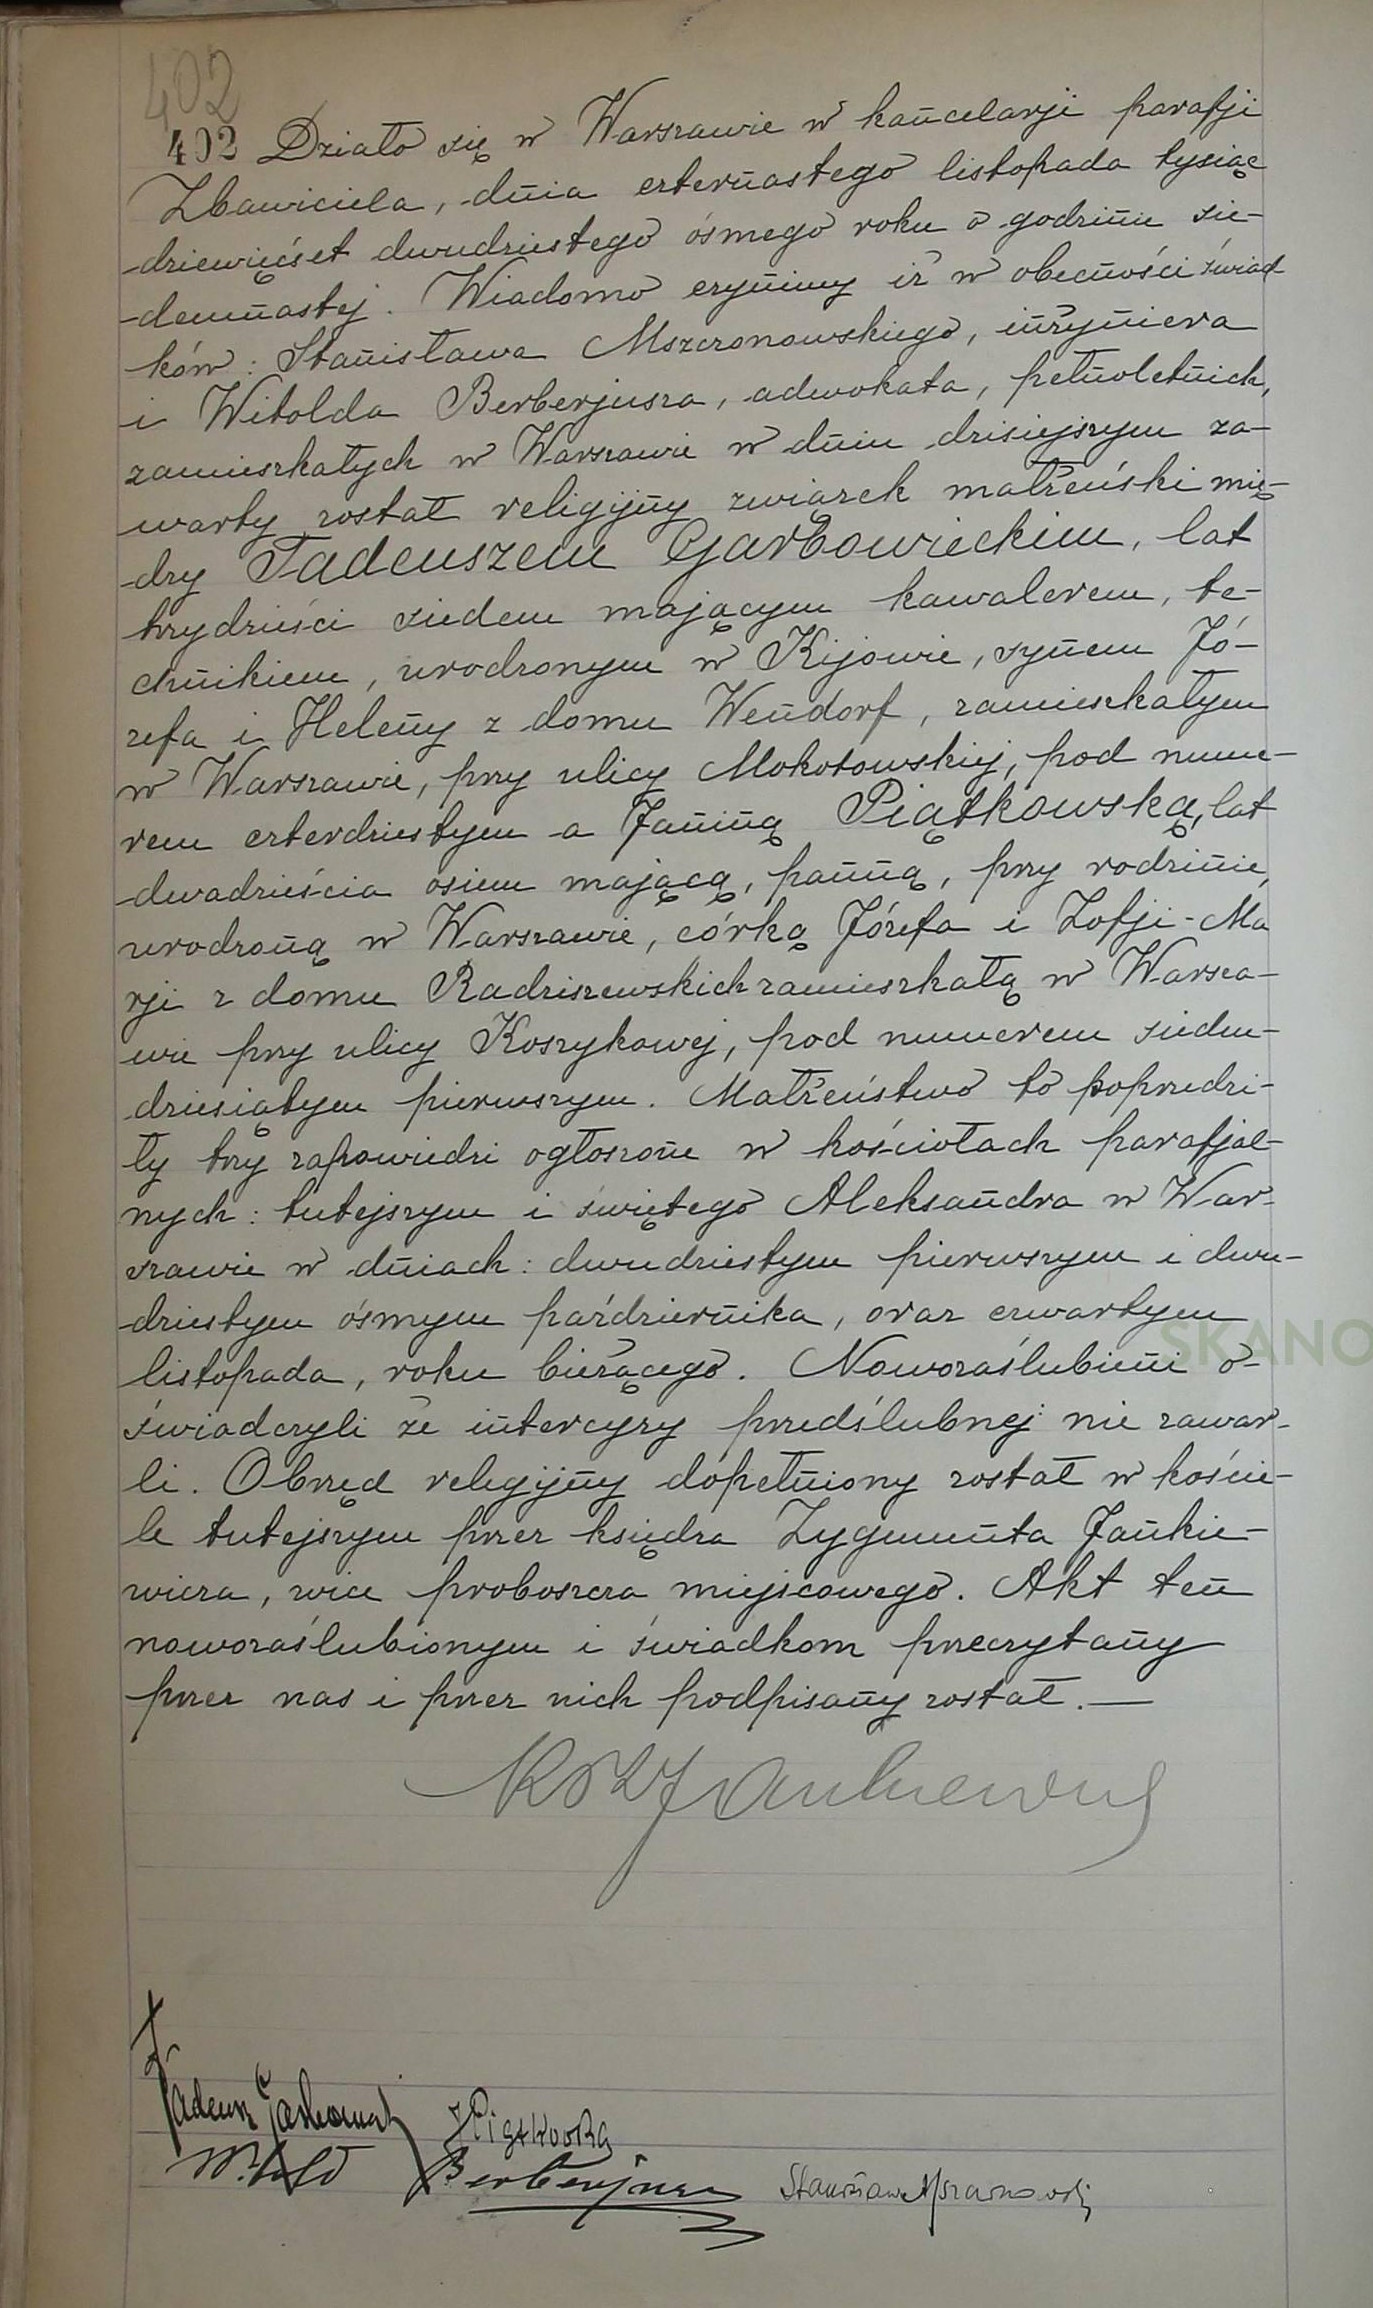 402
402 Działo się w Warszawie w kancelarji parafji
Zbawiciela, dnia czternastego listopada tysiąc
dziewięćset dwudziestego ósmego roku o godzinie sie-
demnastej. Wiadomo czynimy iż w obecności świad
ków: Stanisława Mszczonowskiego, inżyniera
i Witolda Berberjusza, adwokata, pełnoletnich,
zamieszkałych w Warszawie w dniu dzisiejszym za-
warty został religijny związek małżeński mię-
dzy Tadeuszem Garbowieckim, lat
trzydzieści siedem mającym kawalerem, te-
chnikiem, urodzonym w Kijowie, synem Jó-
zefa i Heleny z domu Wendorf, zamieszkałym
w Warszawie, przy ulicy Mokotowskiej, pod nume-
rem czterdziestym a Janiną Piątkowską, lat
dwadzieścia osiem mającą, panną, przy rodzinie,
urodzoną w Warszawie, córką Józefa i Zofji-Ma
rji z domu Radziszewskich zamieszkałą w Warsza-
wie przy ulicy Koszykowej, pod numerem siedm-
dziesiątym pierwszym. Małżeństwo to poprzedzi-
ły trzy zapowiedzi ogłoszone w kościołach parafjal-
nych: tutejszym i świętego Aleksandra w War-
szawie w dniach: dwudziestym pierwszym i dwu-
dziestym ósmym października, oraz czwartym
listopada, roku bieżącego. Nowozaślubieni o-
świadczyli że intercyzy przedślubnej nie zawar-
li. Obrzęd religijny dopełniony został w koście-
le tutejszym przez księdza Zygmunta Jankie-
wicza, wice proboszcza miejscowego. Akt ten
nowozaślubionym i świadkom przeczytany
przez nas i przez nich podpisany został. —
Ks Z Jankiewicz
Tadeusz Garbowiecki JPiątkowska
Witold Berberjusz Stanisław Mszczonowski
SKANO